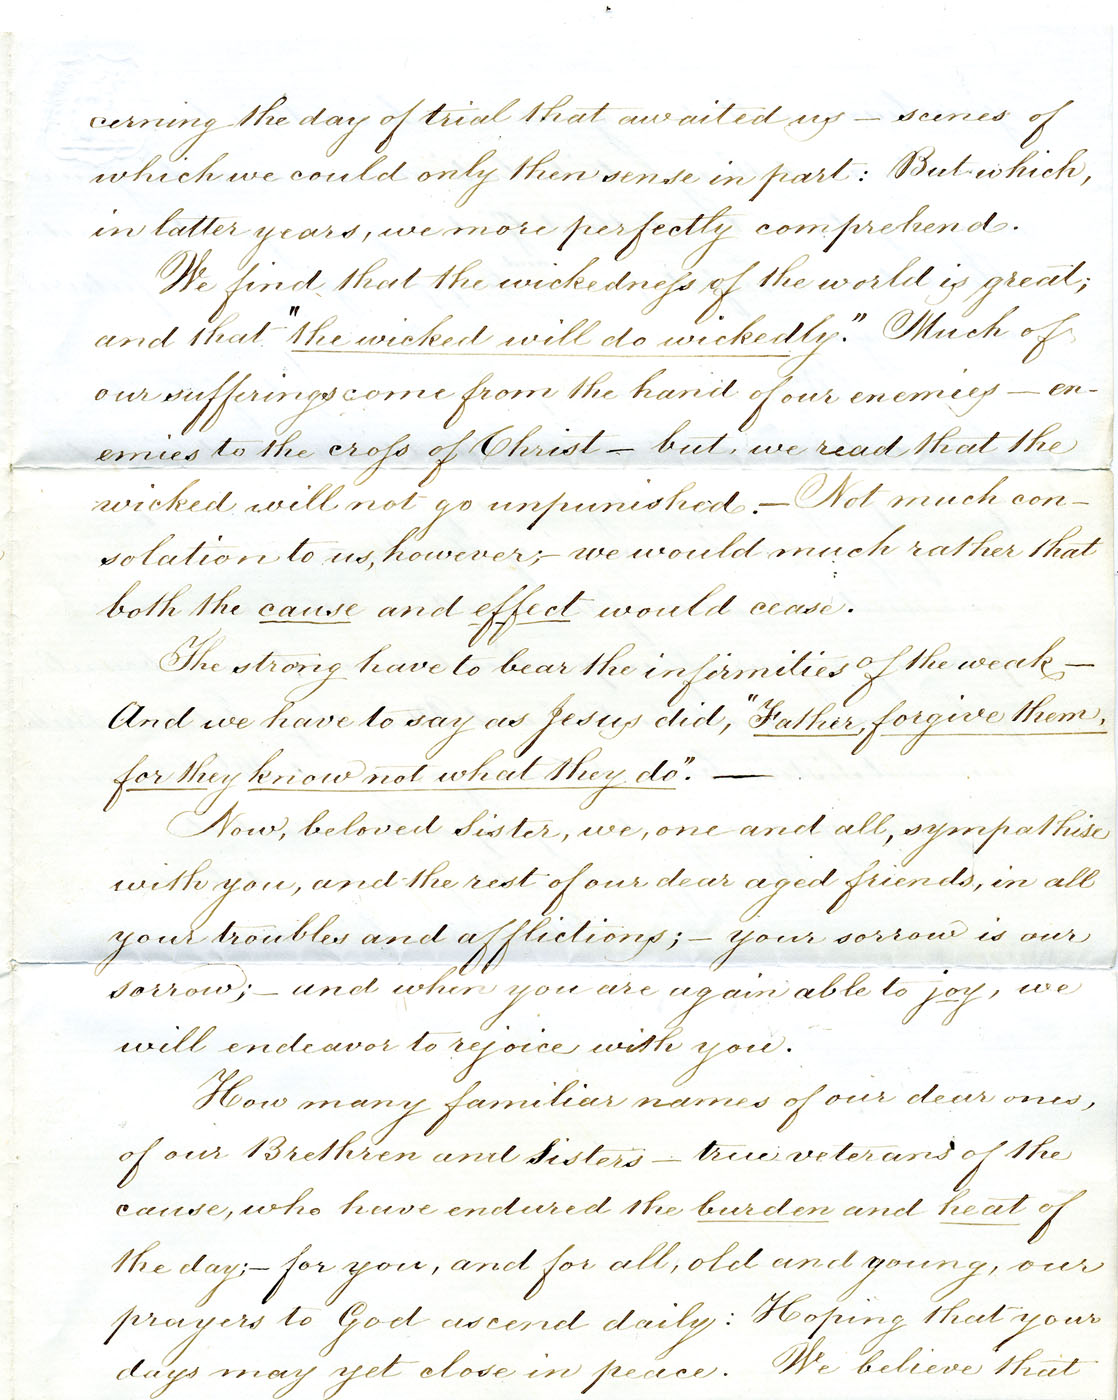 cerning the day of trial that awaited us — scenes of
which we could only then sense in part: But which,
in latter years, we more perfectly comprehend.
We find that the wickedness of the world is great;
and that "the wicked will do wickedly." Much of
our sufferings come from the hand of our enemies — en-
emies to the cross of Christ — but, we read that the
wicked will not go unpunished. — Not much con-
solation to us, however; — we would much rather that
both the cause and effect would cease.
The strong have to bear the infirmities of the weak —
And we have to say as Jesus did, "Father, forgive them,
for they know not what they do". —
Now, beloved Sister, we, one and all, sympathise
with you, and the rest of our dear aged friends, in all
your troubles and afflictions; — your sorrow is our
sorrow; — and when you are again able to joy, we
will endeavor to rejoice with you.
How many familiar names of our dear ones,
of our Brethren and Sisters — true veterans of the
cause, who have endured the burden and heat of
the day; — for you, and for all, old and young, our
prayers to God ascend daily: Hoping that your
days may yet close in peace. We believe that